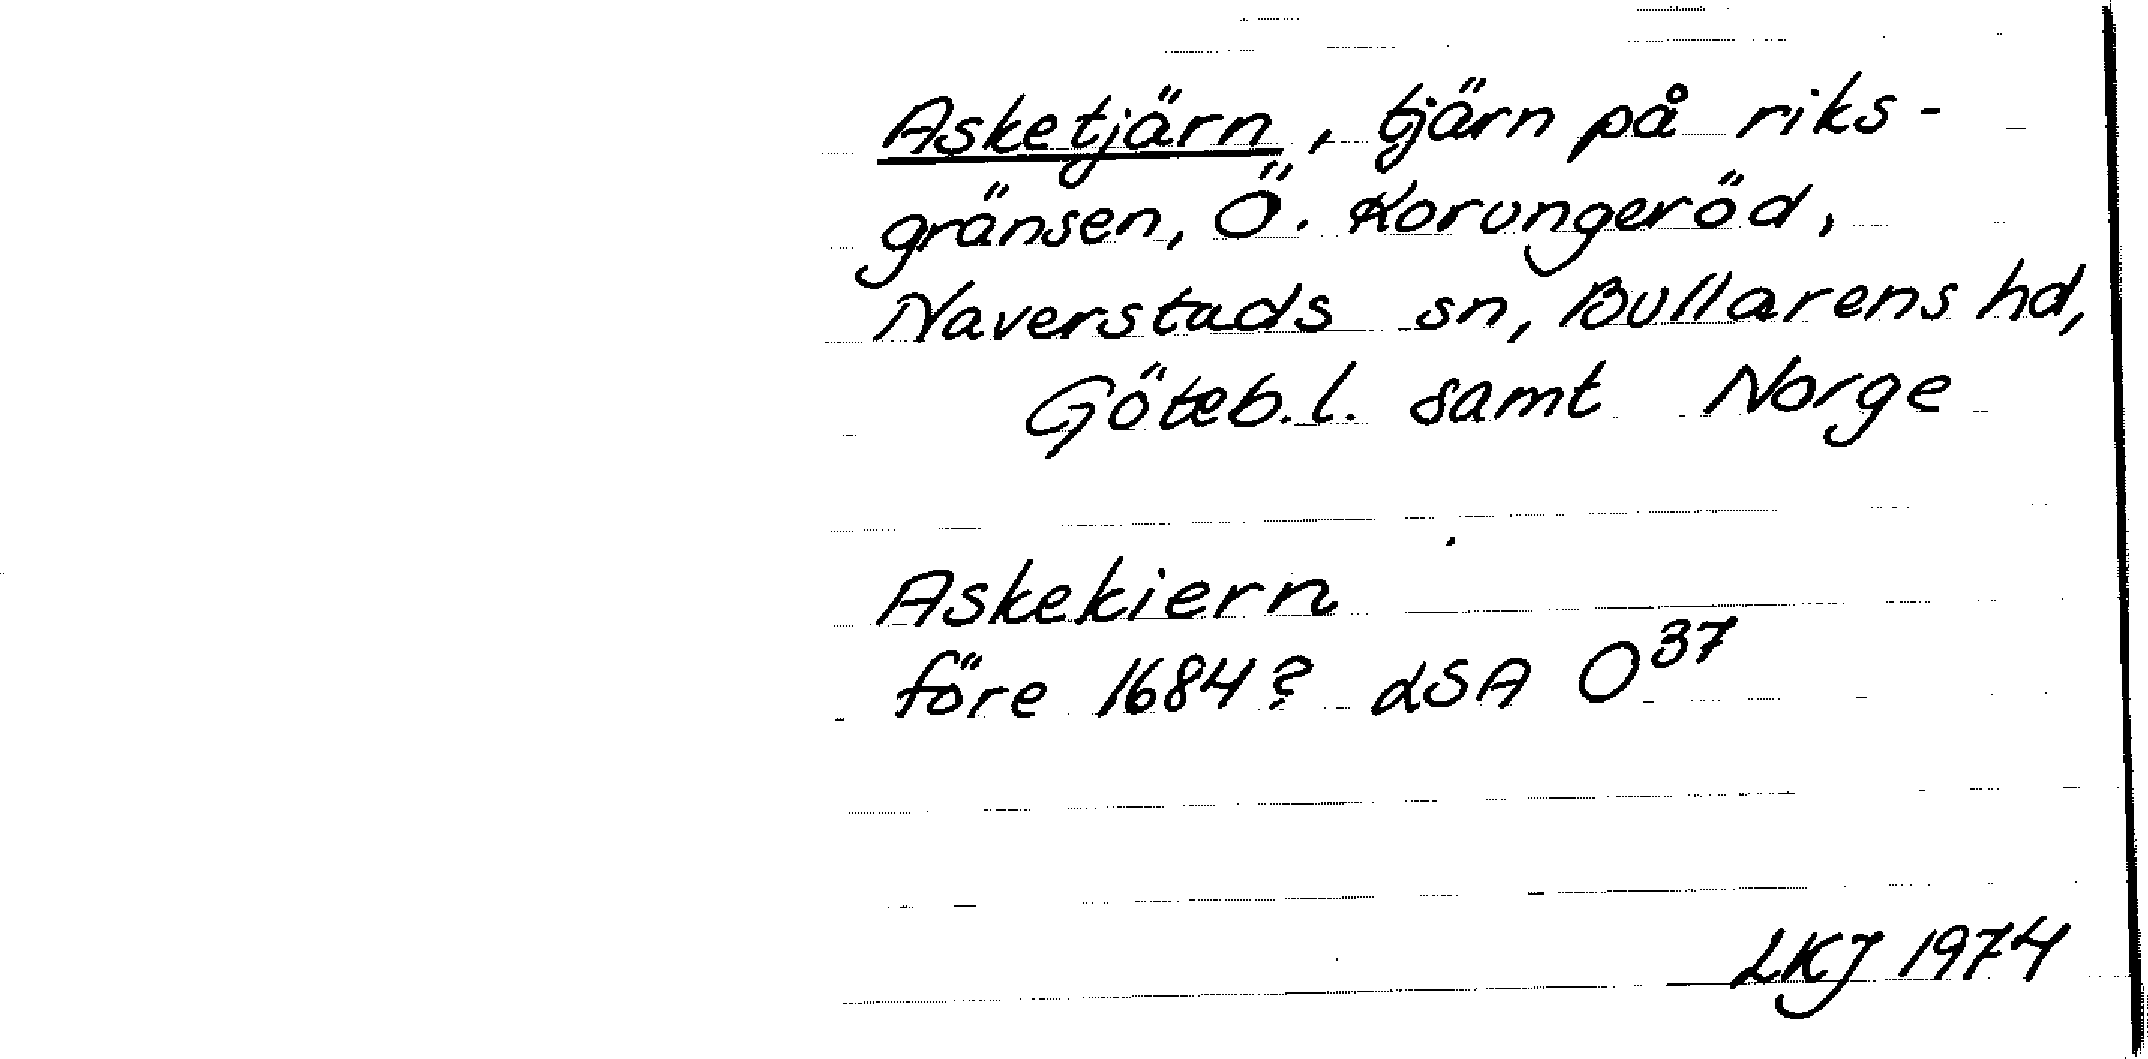 Asketjärn, tjärn på riks-
gränsen, Ö. Korungeröd,
Naverstads sn, Bullarens hd,
Göteb.l. samt Norge
Askekiern
före 1684? LSA O37
LKJ 1974